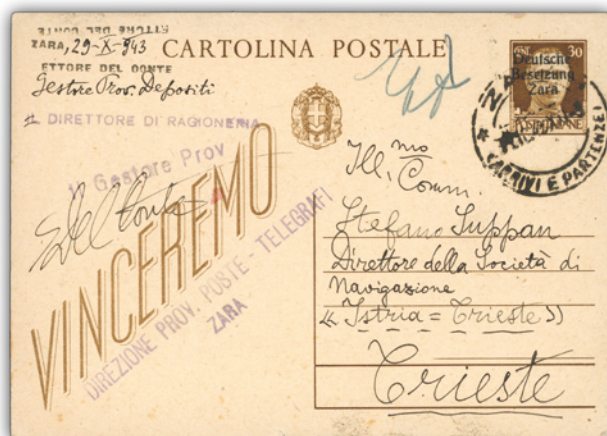 ETTORE DEL CONTE
ZARA, 29-X-943
ETTORE DEL CONTE
Gestore Prov. Depositi
IL DIRETTORE DI RAGIONERIA
Il Gestore Prov
EDelConte
CARTOLINA POSTALE
VINCEREMO
DIREZIONE PROV. POSTE - TELEGRAFI
ZARA
30
Deutsche
Besetzung
Zara
POSTE ITALIANE
(ARRIVI E PARTENZE)
Ill.mo Comm.
Stefano Suppan
Direttore della Società di
Navigazione
« Istria = Trieste »
Trieste